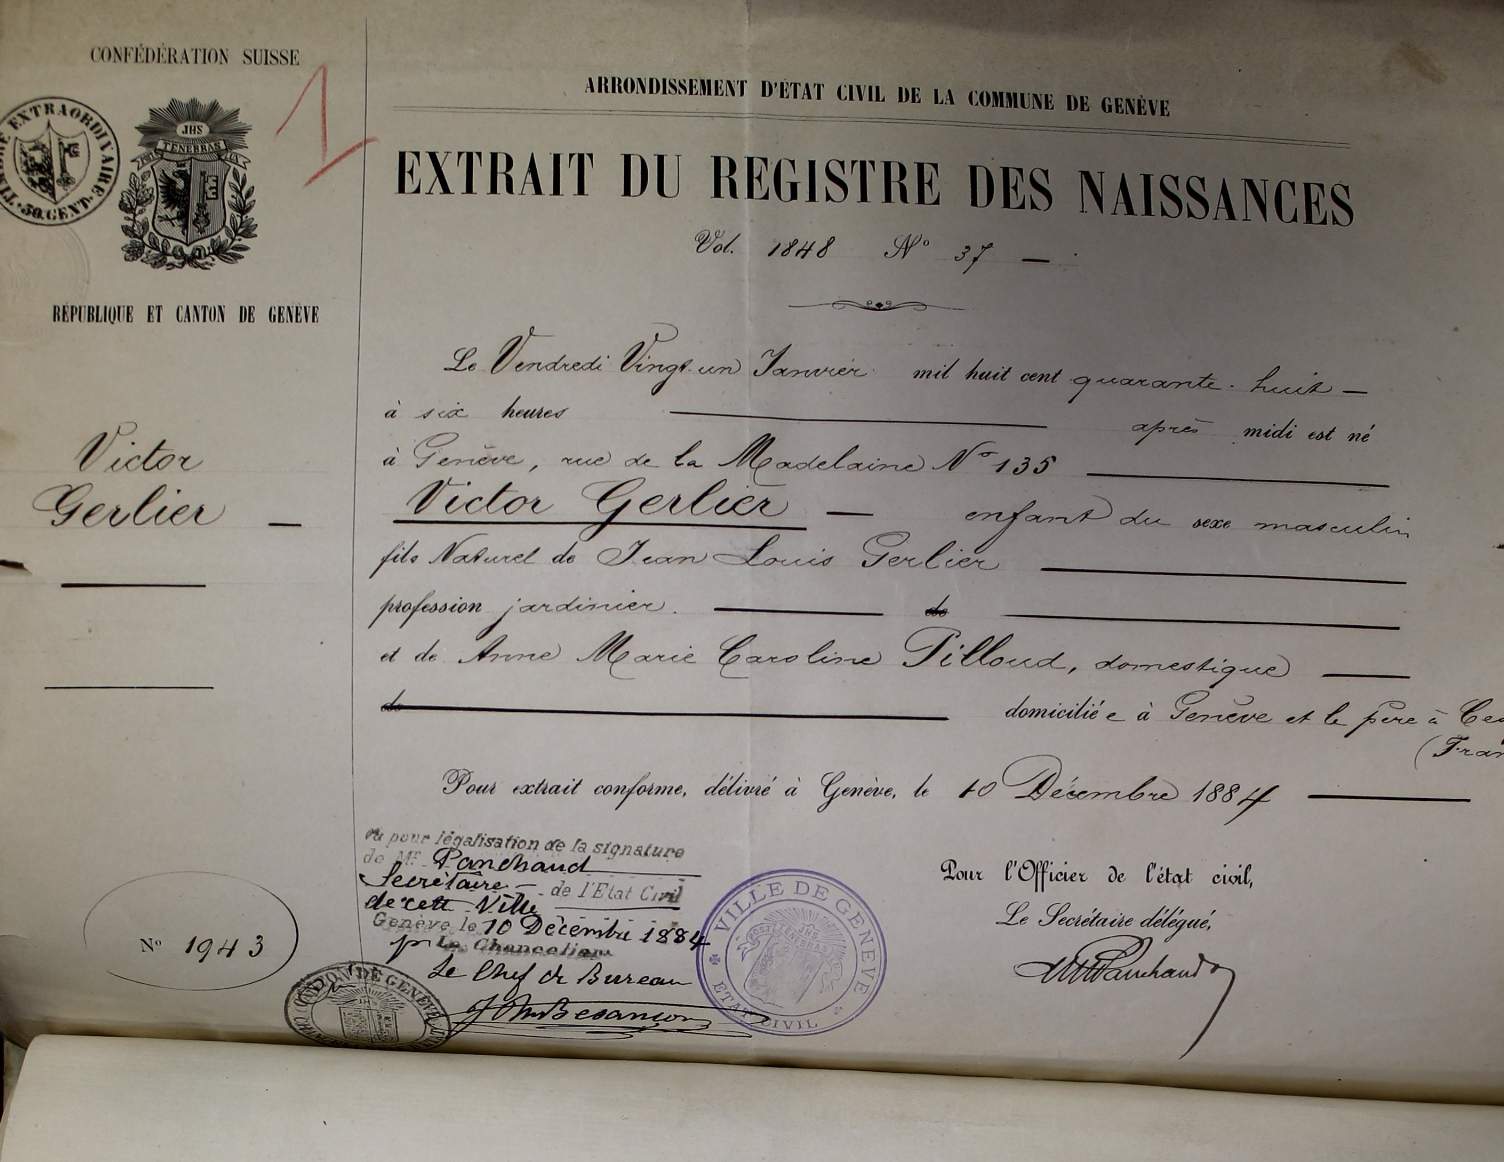 CONFÉDÉRATION SUISSE
1
TIMBRE EXTRAORDINAIRE
50. CENT.
JHS
POST TENEBRAS LUX
RÉPUBLIQUE ET CANTON DE GENÈVE
Victor
Gerlier —
Nº 1943
ARRONDISSEMENT D'ÉTAT CIVIL DE LA COMMUNE DE GENÈVE
EXTRAIT DU REGISTRE DES NAISSANCES
Vol. 1848 Nº 37 —
Le Vendredi Vingt-un Janvier mil huit cent quarante-huit —
à six heures après midi est né
à Genève, rue de la Madelaine Nº 135
Victor Gerlier — enfant du sexe masculin
fils Naturel de Jean Louis Gerlier
profession jardinier. de
et de Anne Marie Caroline Pilloud, domestique
de domiciliée à Genève et le père à
(Fran
Pour extrait conforme, délivré à Genève, le 10 Décembre 1884
Vu pour légalisation de la signature
de Mr. Panchaud
Secrétaire — de l'Etat Civil
de cette Ville
Genève le 10 Décembre 1884
pr Le Chancelier
Le Chef de Bureau
Besançon
CANTON DE GENÈVE
VILLE DE GENÈVE
JHS
POST TENEBRAS
ETAT CIVIL
Pour l'Officier de l'état civil,
Le Secrétaire délégué,
Panchaud